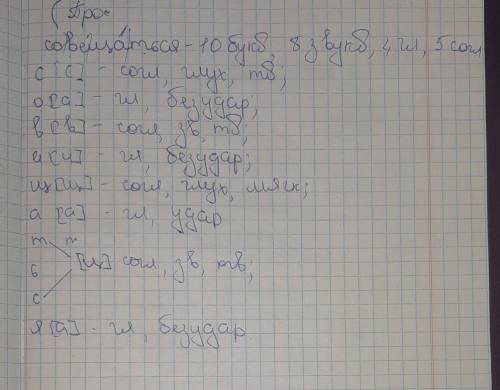 (Про
совеща́ться - 10 букв, 8 звукв, 4 гл, 5 согл
с [с] - согл, глух, тв;
о [а] - гл, безудар;
в [в] - согл, зв, тв;
и [и] - гл, безудар;
щ [щ] - согл, глух, мягк;
а [а] - гл, удар
т т
ь [ц] согл, зв, тв;
с
я [а] - гл, безудар